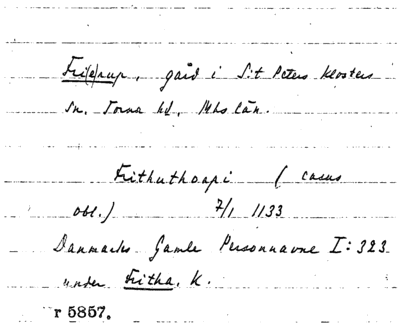 Fri(e)rup, gård i S:t Peters klosters
sn, Torna hd, Mhs län.
Frithuthorpi (casus
obl.) 7/1 1133
Danmarks Gamle Personnavne I:323
under Fritha, K.
r 5857.